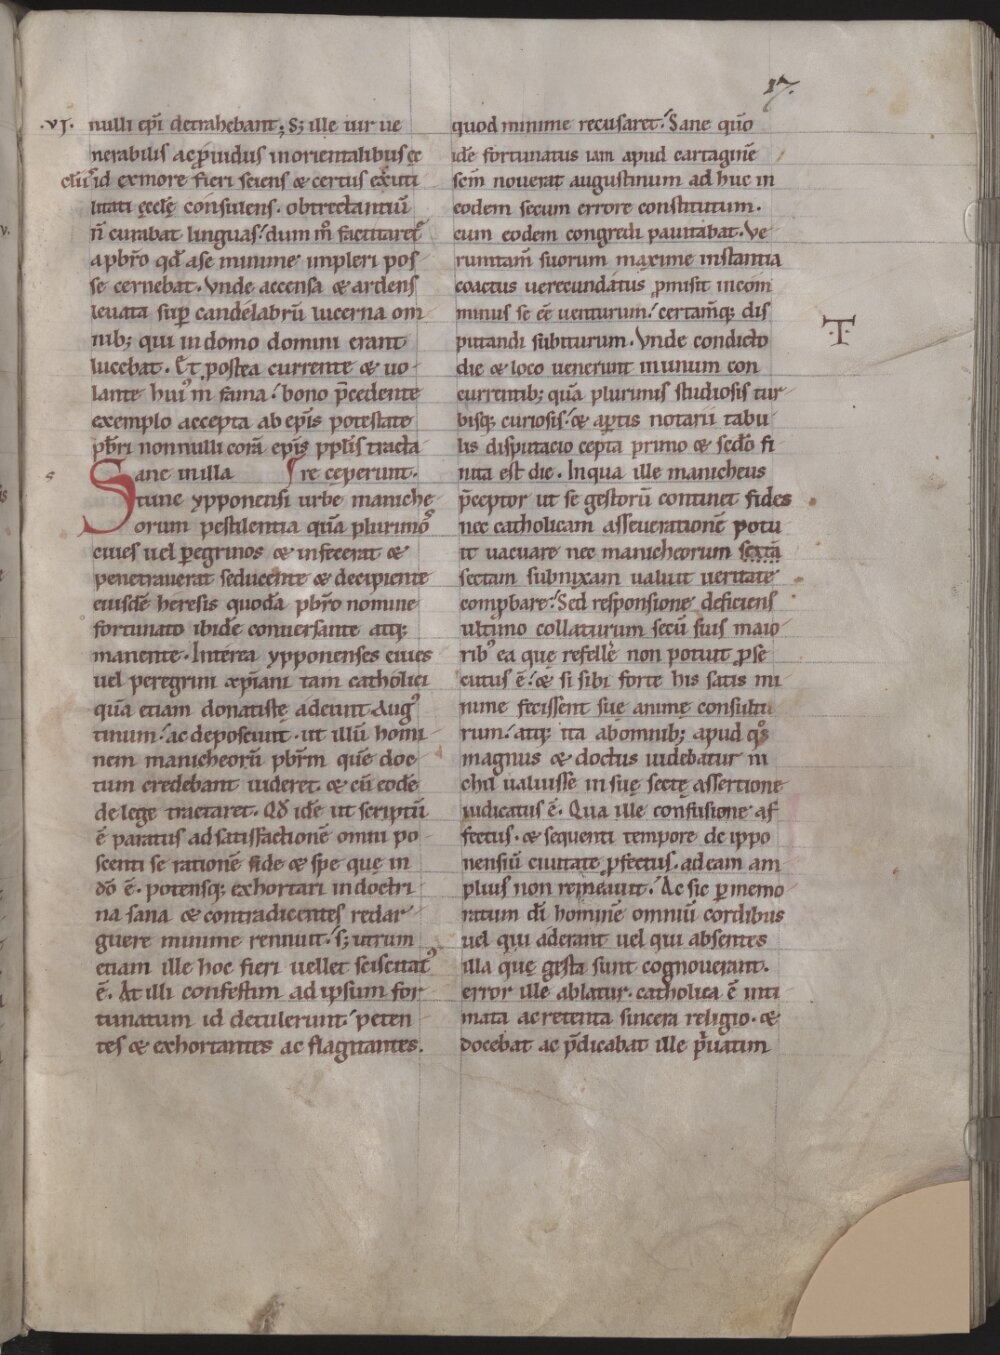 17.
.VI. nulli ep̄i detrahebant; S; ille uir ue
nerabilis ac p̄uidus in orientalibus ęc
cl̄iis id ex more fieri sciens & certus & uti
litati ęcclę consulens. obtrectantiū
n̄ curabat linguas. dum m̄ factitaret᷑
a pb̄ro qd̄ a se minime impleri pos
se cernebat. Vnde accensa & ardens
leuata sup candelabrū lucerna om
nib; qui in domo domini erant
lucebat. Et postea currente & uo
lante huiꝰ m̄ fama. bono p̄cedente
exemplo accepta ab ep̄is potestate
pb̄ri nonnulli corā ep̄is pplis tracta
Sane in illa re ceperunt.
tunc ypponensi urbe maniche
orum pestilentia quā plurimos
ciues uel peregrinos & infecerat &
penetrauerat seducente & decipiente
eiusdē heresis quodā pb̄ro nomine
fortunato ibidē conuersante atq;
manente. Interea ypponenses ciues
uel peregrini xp̄iani tam catholici
quā etiam donatistę adeunt Augꝰ
tinum. ac deposcunt. ut illū homi
nem manicheorū pb̄rm quē doc
tum credebant uideret & cū eodē
de lege tractaret. Qd̄ idē ut scriptū
ē paratus ad satisfactionē omni po
scenti se rationē fide & spe que in
dō ē. potensq; exhortari in doctri
na sana & contradicentes redar
guere minime rennuit. s; utrum
etiam ille hoc fieri uellet sciscitatꝰ
ē. At illi confestim ad ipsum for
tunatum id detulerunt. peten
tes & exhortantes ac flagitantes.
quod minime recusaret. Sane quō
idē fortunatus iam apud cartaginē
sem̄ nouerat augustinum ad huc in
eodem secum errore constitutum.
cum eodem congredi pauitabat. Ve
runtam̄ suorum maxime instantia
coactus uerecundatus p̄misit in com
minus se eē uenturum. certamq; dis
putandi subiturum. Vnde condicto
die & loco uenerunt in unum con
currentib; quā plurimis studiosis tur
bisq; curiosis. & aptis notarii tabu
lis disputacio cepta primo & sedo fi
nita est die. In qua ille manicheus
p̄ceptor ut se gestorū continet fides
nec catholicam asseuerationē potu
it uacuare nec manicheorum sextā
sectam subnixam ualuit ueritate
comp̄bare. Sed responsione deficiens
ultimo collaturum secū suis maio
ribꝰ ea que refellē non potuit p̄se
cutus ē. & si sibi forte his satis mi
nime fecissent suę animę consultu
rum. atq; ita ab omnib; apud qos
magnus & doctus uidebatur ni
chil ualuisse in suę sectę assertione
iudicatus ē. Qua ille confusione af
fectus. & sequenti tempore de ippo
nensiū ciuitate p̄fectus. ad eam am
plius non remeauit. Ac sic p memo
ratum dī hominē omniū cordibus
uel qui aderant uel qui absentes
illa que gesta sunt cognouerant.
error ille ablatur. catholica ē inti
mata ac retenta sincera religio. &
docebat ac p̄dicabat ille p̄uatim
T